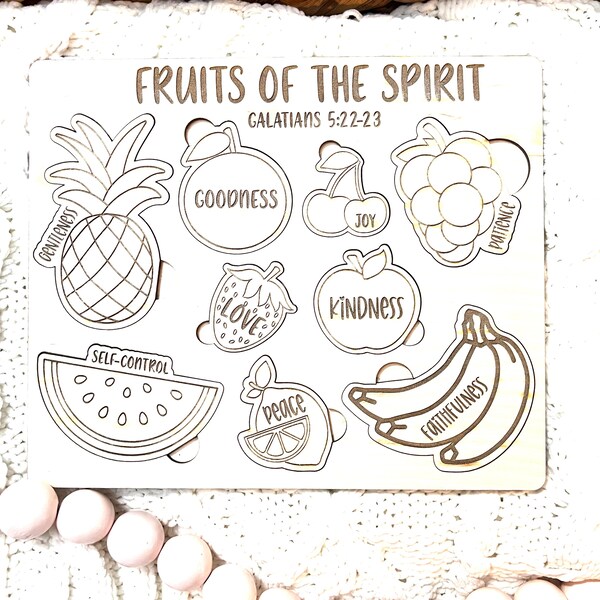 FRUITS OF THE SPIRIT
GALATIANS 5:22-23
GENTLENESS
GOODNESS
JOY
PATIENCE
LOVE
KINDNESS
SELF-CONTROL
PEACE
FAITHFULNESS